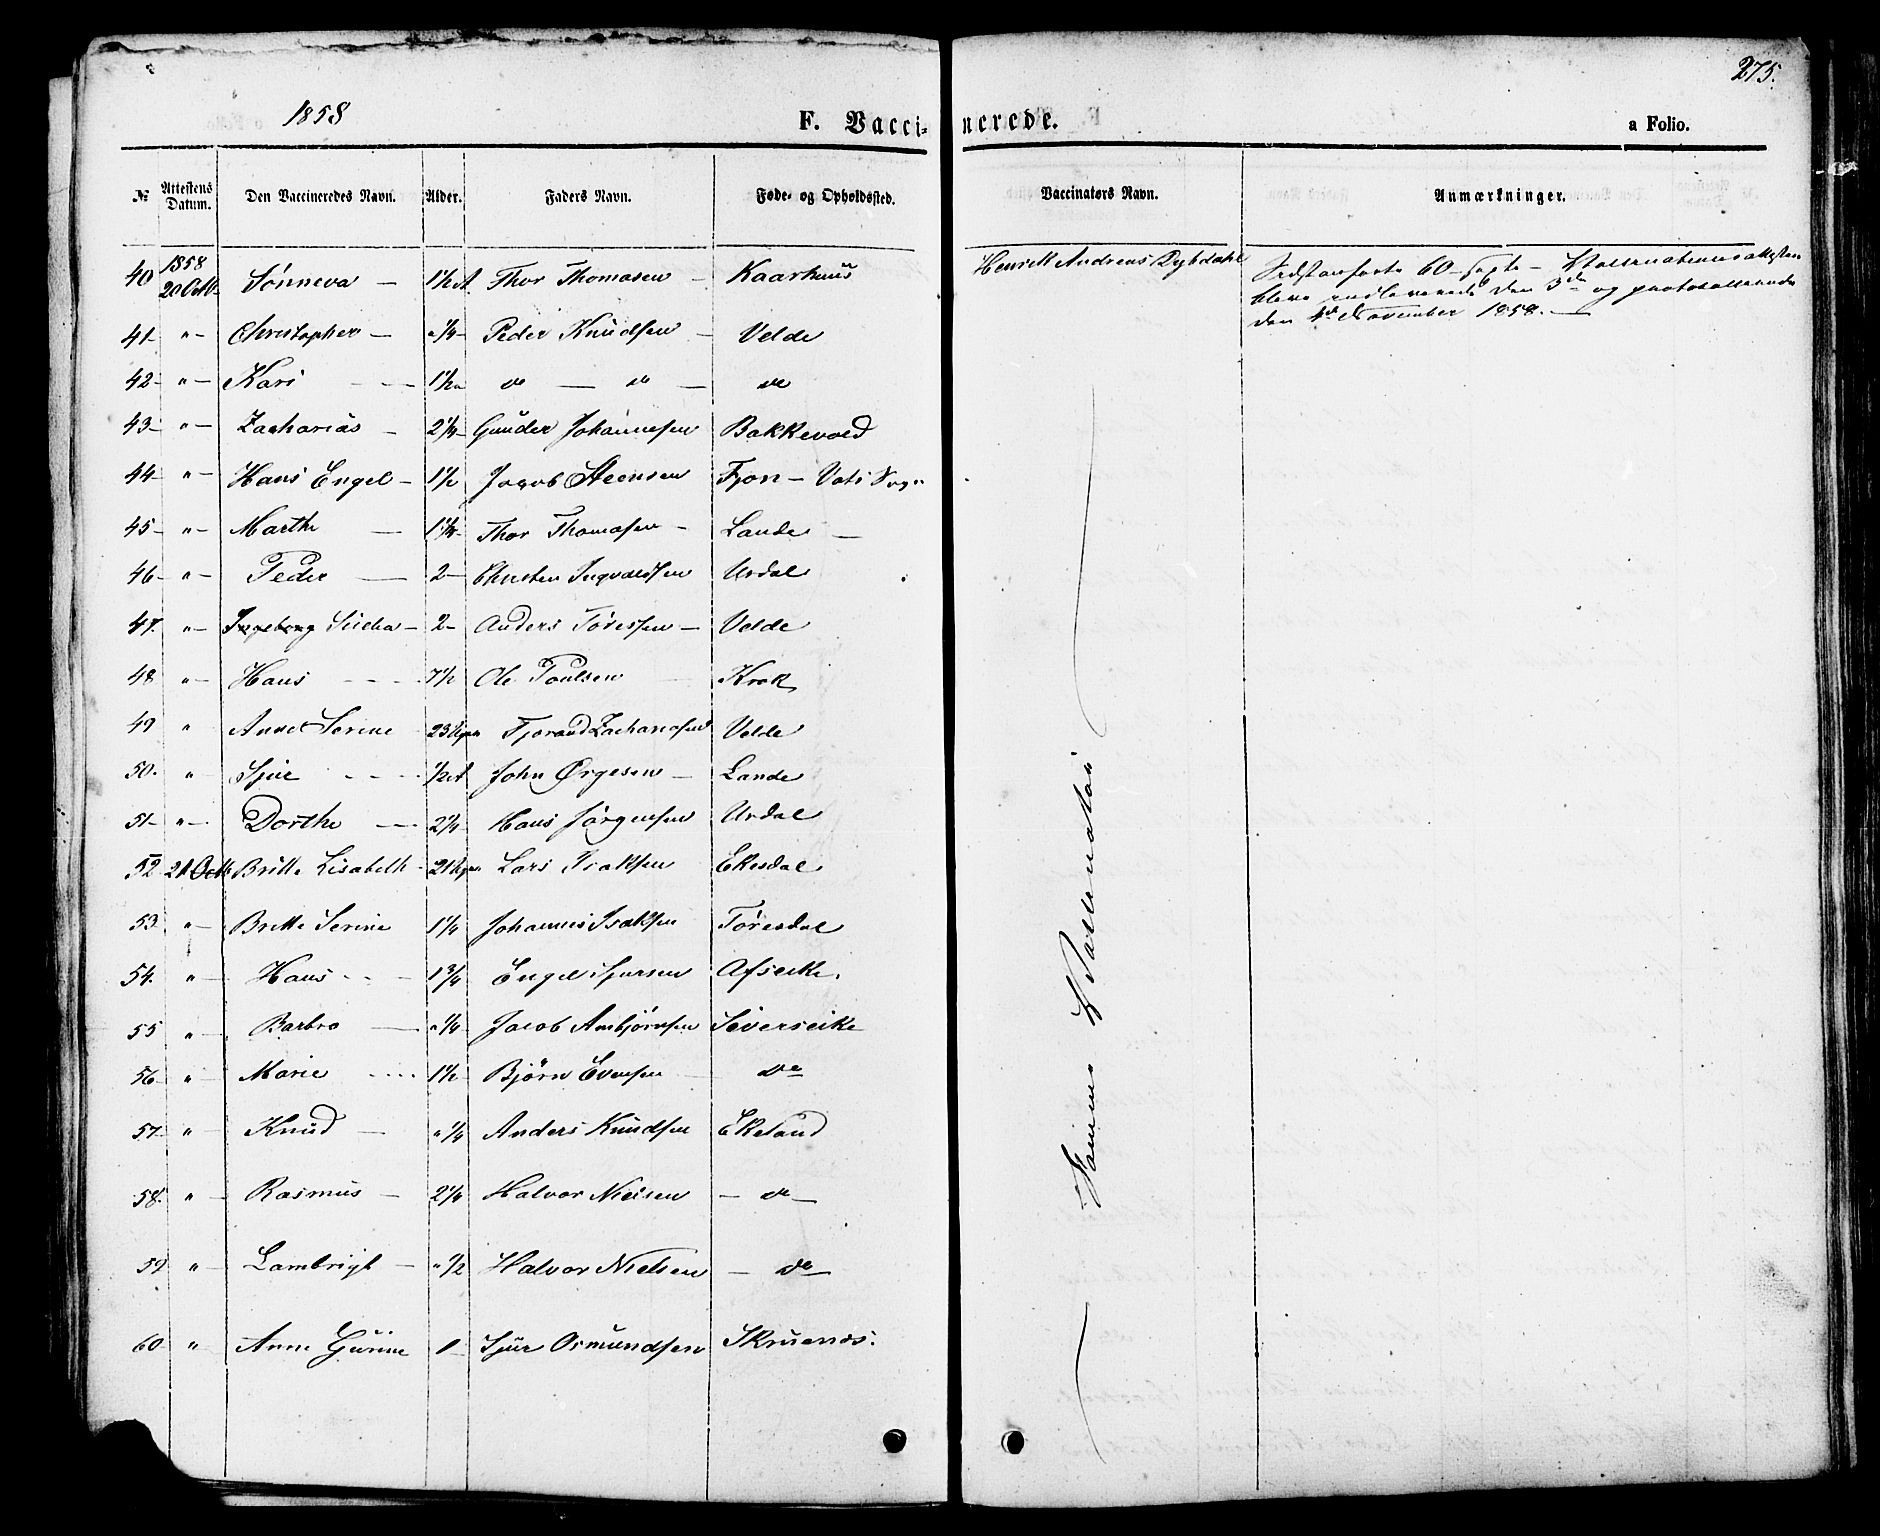 275.
1858
F. Vaccinerede.
a Folio.
№ Attestens Datum. Den Vaccineredes Navn. Alder. Faders Navn. Føde- og Opholdssted. Vaccinators Navn. Anmærkninger.
40 1858 20 Octb- Sønneva - 1½ A Thor Thomasen - Kaarhuus Henrik Andreas
60 - Vaccinationsattester
bleve indleverede den 3die og protocollerede
den 4de November 1858. -
41- "- Christopher - "¼- Peder Knudsen - Velde
42- "- Kari - - 1½ " do - do - do
43- "- Zacharias - 2¼- Gunder Johannesen Bakkevold
44- "- Hans Engel - 1½ Jacob Steensen Fjon - Vats Sogn
45- "- Marthe - 1¼- Thor Thomasen - Lande -
46- "- Peder - 2- Christen Ingvaldsen Urdal
47. "- Ingeborg Siicha - 2- Anders Toresen - Velde
48 "- Hans - - - 7½ Ole Poulsen Krak
49 " Anne Serine 23 Ugr Tjorand Zachariasen Velde
50. " Sjur - - - ½ A John Ørgesen - Lande
51- "- Dorthe - 2¼ Hans Jørgensen Urdal
52 21 Octb Britte Lisabeth - 21 Ugr Lars Isaksen Ekesdal
53 "- Britte Serine 1¼ Johannes Isaksen Toresdal
54. "- Hans - - - 1¾ Engel Sjursen Afseike.
55 "- Barbro - "¼- Jacob Asbjørnsen Siverseike
56- "- Marie - - - 1½ Bjørn Evensen do
57- "- Knud - "¼ Anders Knudsen Ekeland
58. "- Rasmus - 2¼ Halvor Nielsen - do -
59 "- Lambrigt - "½ Halvor Nielsen - do -
60 "- Anne Gurine 1- Sjur Osmundsen Skruenes.
Samme Vaccinatør